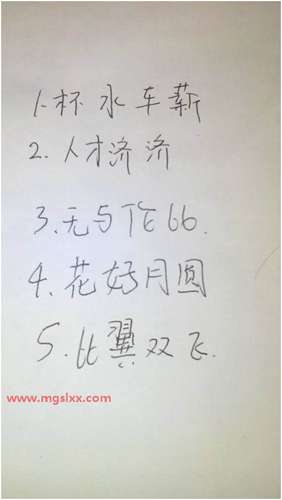 1.杯水车薪
2.人才济济
3.无与伦比.
4.花好月圆
5.比翼双飞.
www.mgslxx.com